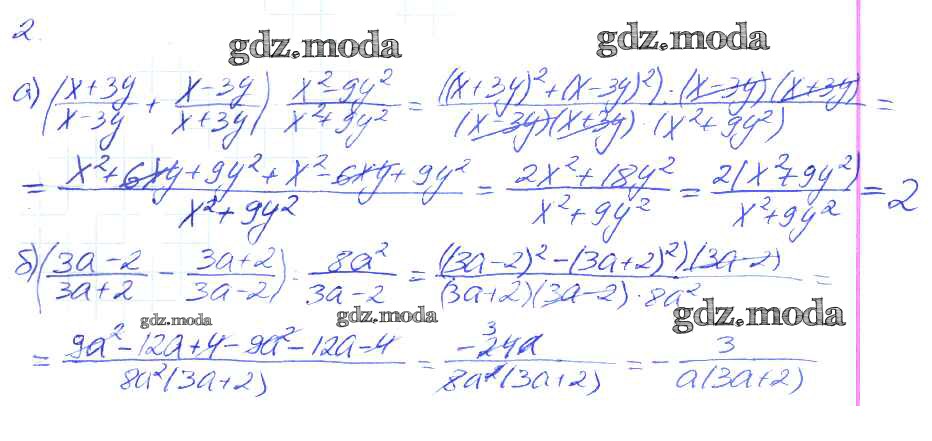 2.
gdz.moda
gdz.moda
а) ((x+3y)/(x-3y) + (x-3y)/(x+3y)) · (x²-9y²)/(x²+9y²) = ((x+3y)²+(x-3y)²)·(x-3y)(x+3y)/((x-3y)(x+3y)·(x²+9y²)) =
= (x²+6xy+9y²+x²-6xy+9y²)/(x²+9y²) = (2x²+18y²)/(x²+9y²) = 2(x²+9y²)/(x²+9y²) = 2
б) ((3a-2)/(3a+2) - (3a+2)/(3a-2)) : 8a²/(3a-2) = ((3a-2)²-(3a+2)²)·(3a-2)/((3a+2)(3a-2)·8a²) =
gdz.moda
gdz.moda
gdz.moda
= (9a²-12a+4-9a²-12a-4)/(8a²(3a+2)) = -24a/(8a²(3a+2)) = -3/(a(3a+2))